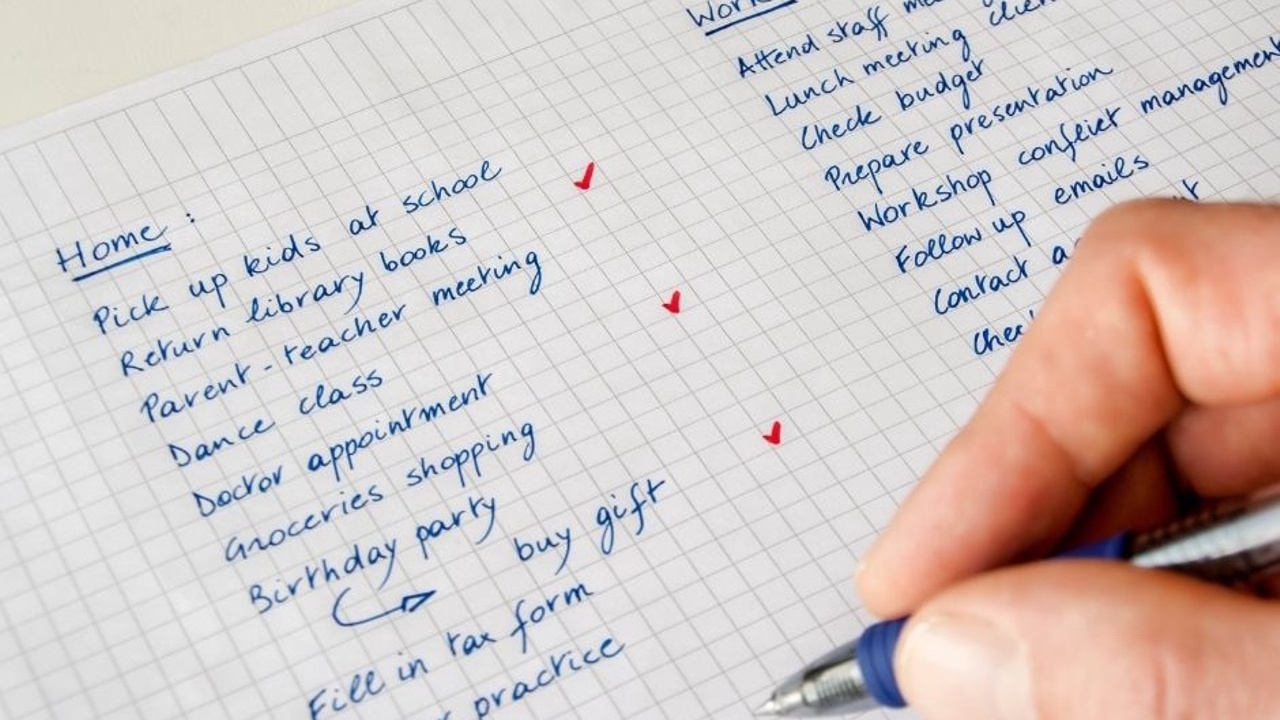 Home :
Pick up kids at school
Return library books
Parent-teacher meeting
Dance class
Doctor appointment
Groceries shopping
Birthday party
buy gift
Fill in tax form
practice
Work
Attend staff
Lunch meeting
Check budget
Prepare presentation
Workshop conflict management
Follow up emails
Contact